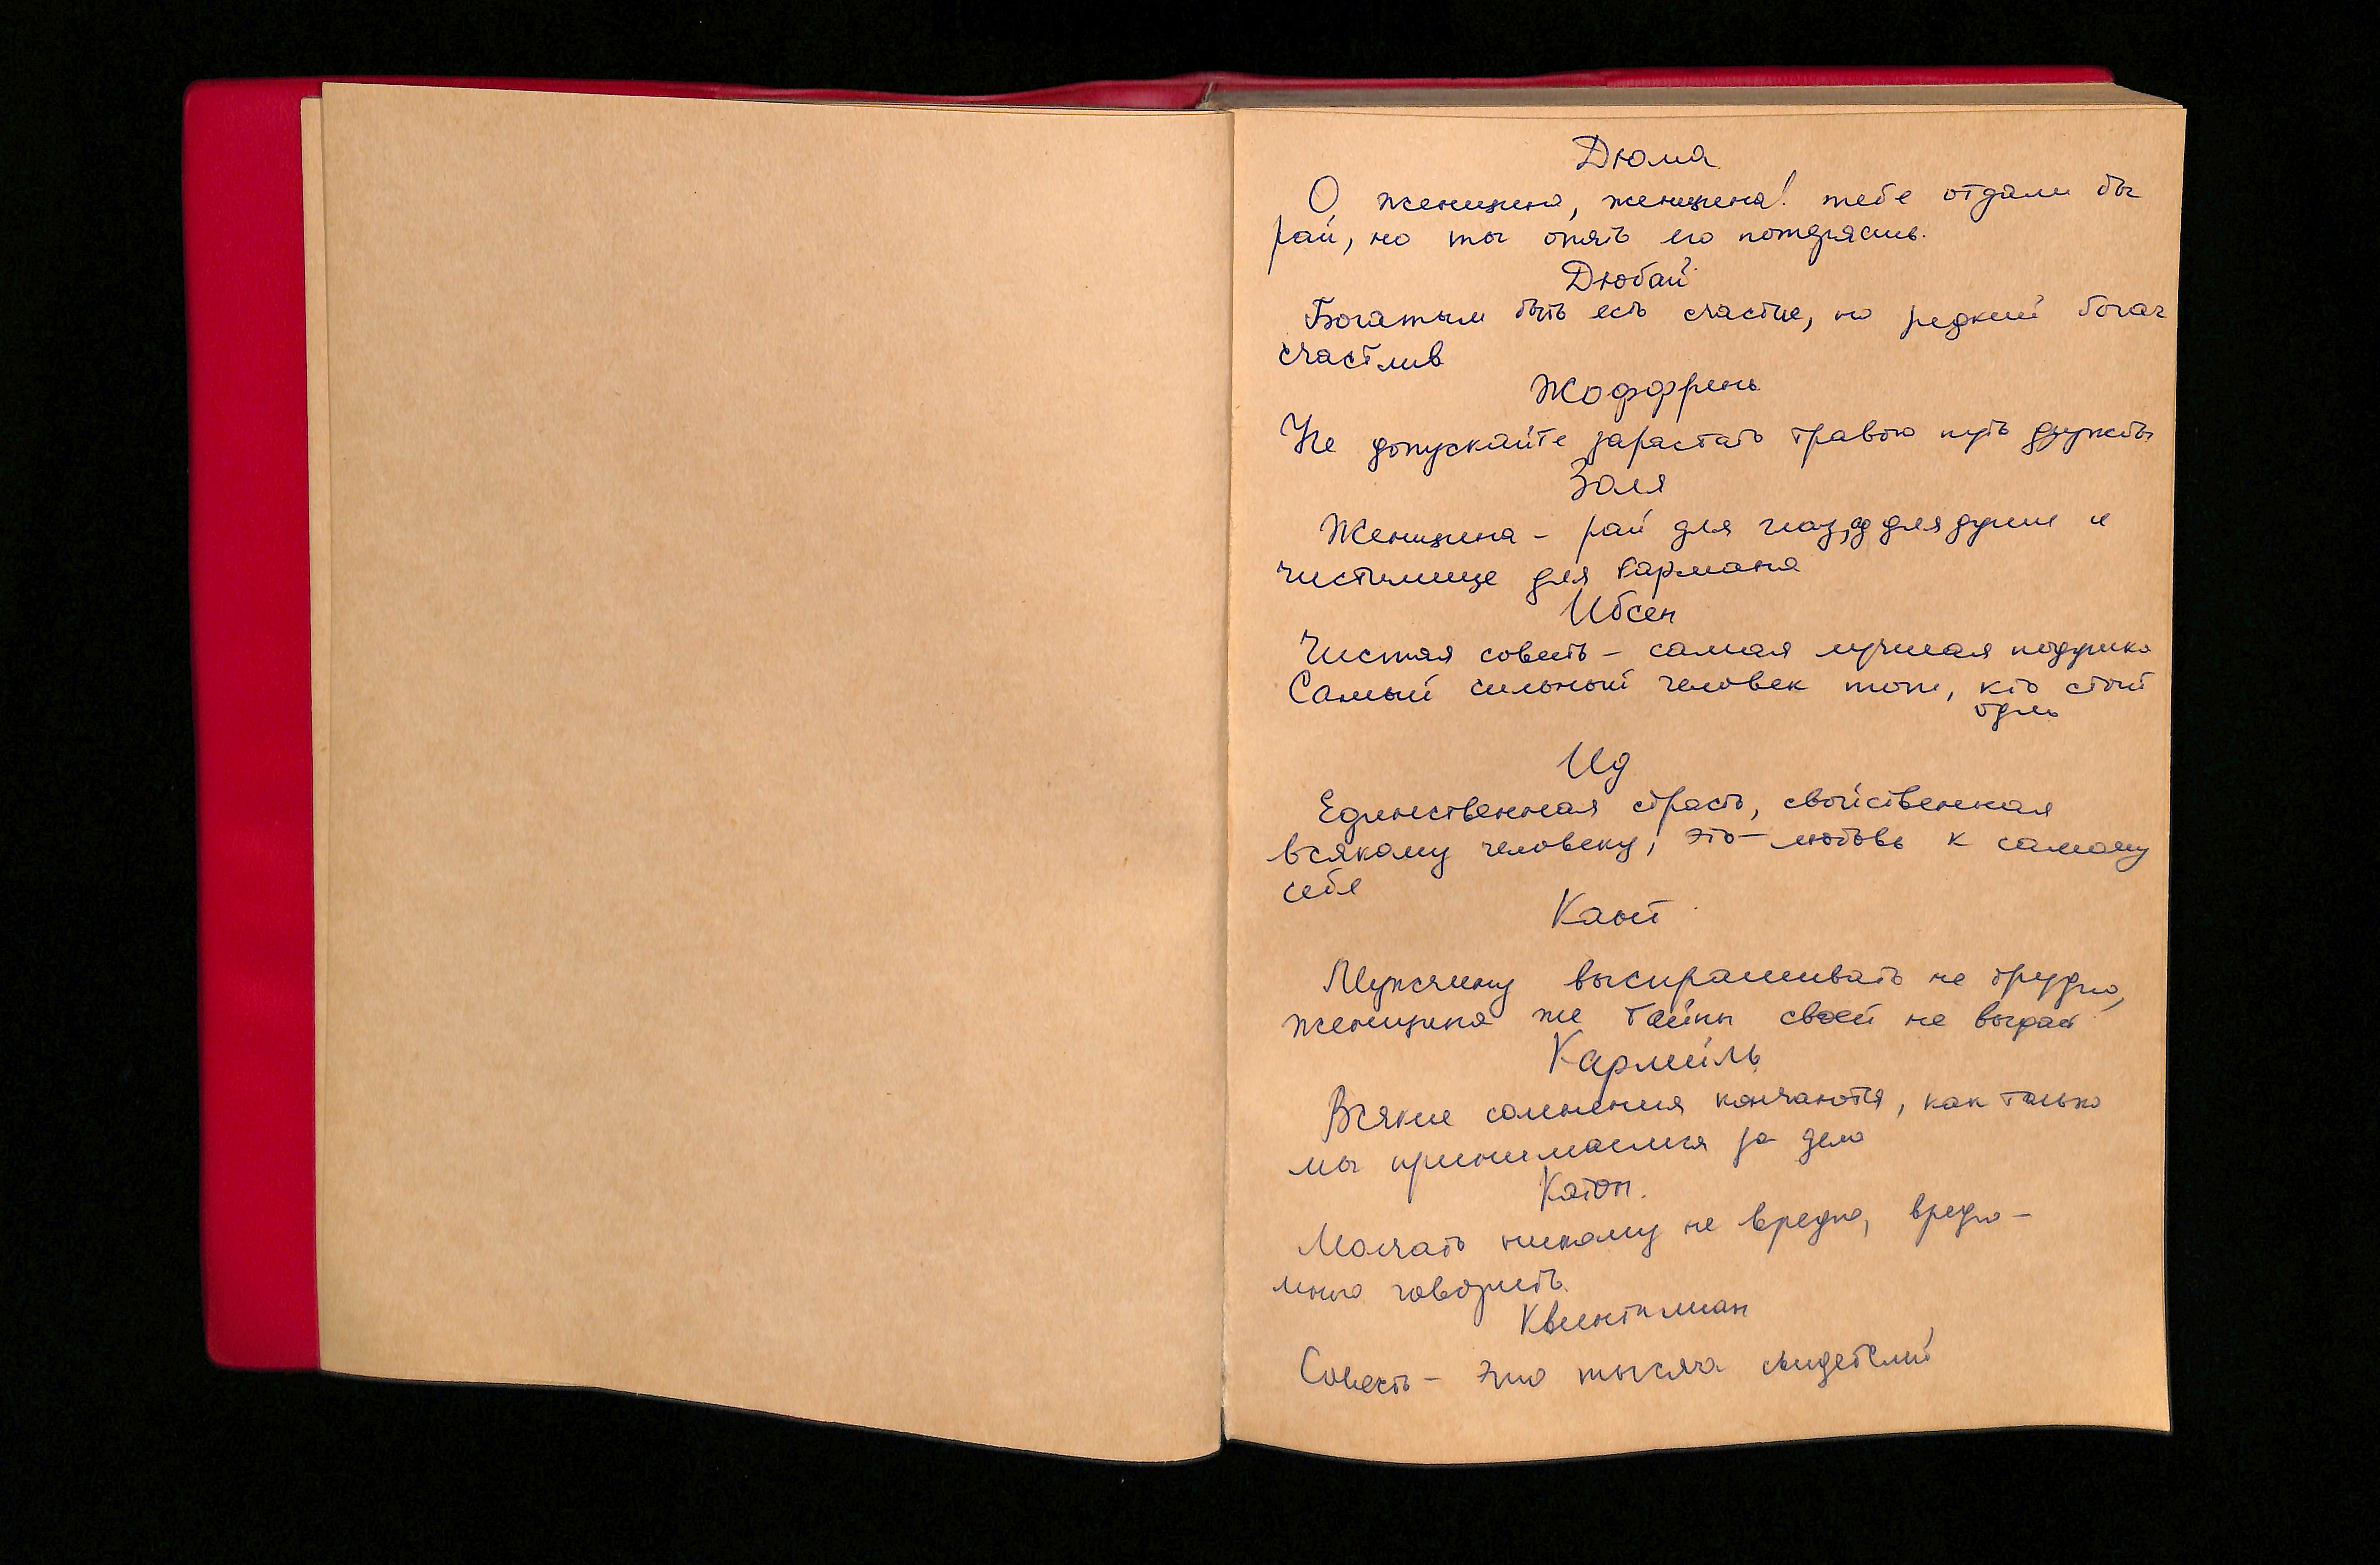 Дюма
О, женщина, женщина! тебе отдали бы
рай, но ты опять его потеряешь.
Дюбай
Богатым быть есть счастие, но редкий богач
счастлив
Жоффрень
Не допускайте зарастать травою путь дружбы
Золя
Женщина - рай для глаз, ад для души и
чистилище для кармана
Ибсен
Чистая совесть - самая лучшая подушка
Самый сильный человек тот, кто стоит
один
Ид
Единственная страсть, свойственная
всякому человеку, это - любовь к самому
себе
Кант
Мужчину выспрашивать не трудно,
женщина же тайны своей не выдает
Карлейль
Всякие сомнения кончаются, как только
мы принимаемся за дело
Катон.
Молчать никому не вредно, вредно -
много говорить.
Квинтилиан
Совесть - это тысяча свидетелей